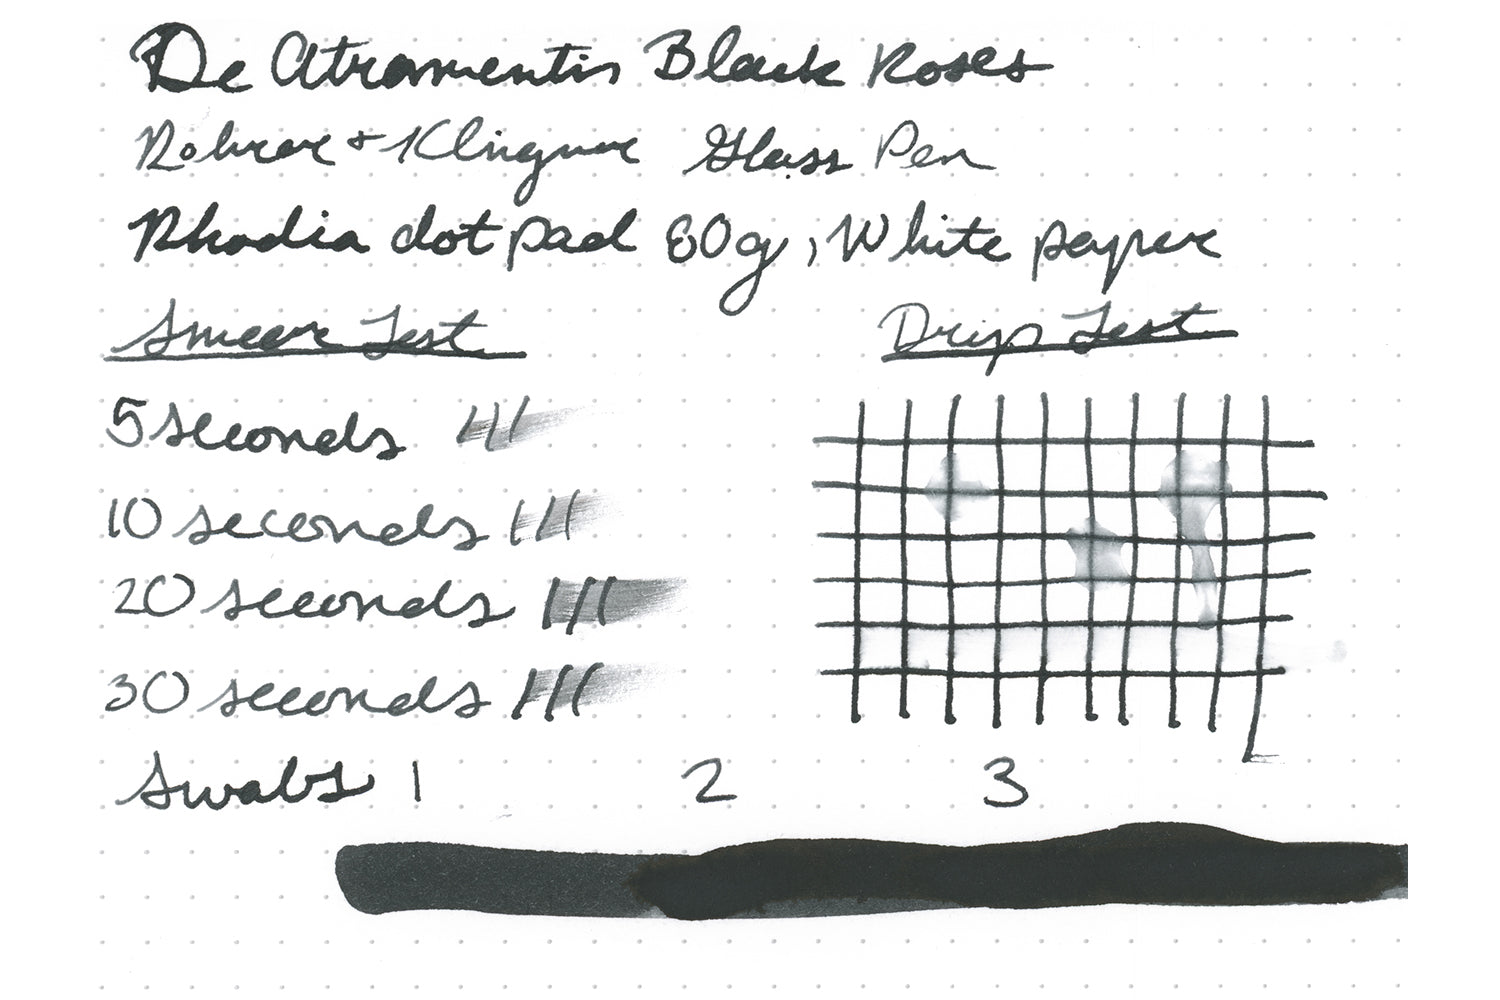 De Atramentis Black Roses
Rohrer + Klingner Glass Pen
Rhodia dot pad 80g, White paper
Smear Test
Drip Test
5 seconds
10 seconds
20 seconds
30 seconds
Swabs 1 2 3